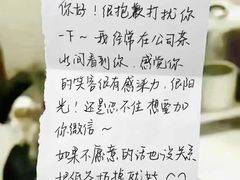 你好！很抱歉打扰你
一下～我经常在公司茶
水间看到你，感觉你
的笑容很有感染力，很阳
光！还是忍不住想要加
你微信～
如果不愿意的话也没关系
把纸条扔掉就好